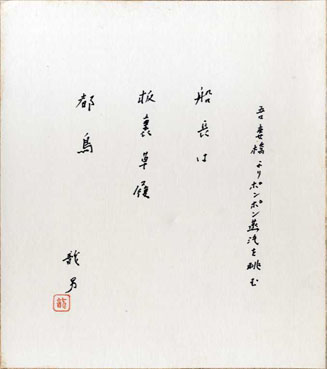 吾妻橋よりポンポン蒸汽を眺む
船長は
板裏草履
都鳥
龍男
龍